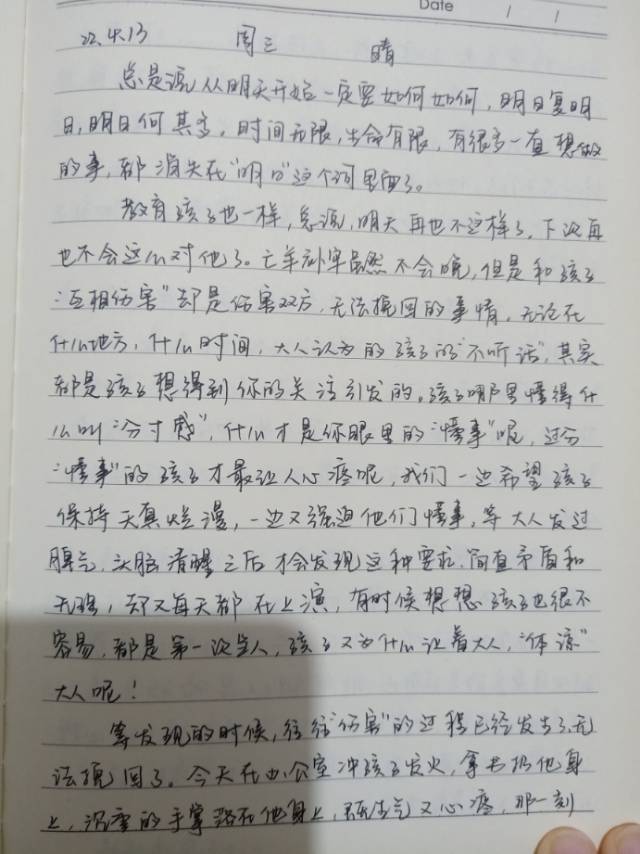 Date / /
22.4.13 周三 晴
总是说从明天开始一定要如何如何，明日复明
日，明日何其多，时间无限，生命有限，有很多一直想做
的事，都消失在"明日"这个词里面了。
教育孩子也一样，总说，明天再也不这样了，下次再
也不会这么对他了。亡羊补牢虽然不会晚，但是和孩子
"互相伤害"却是伤害双方，无法挽回的事情，无论在
什么地方，什么时间，大人认为的孩子的"不听话"，其实
都是孩子想得到你的关注引发的。孩子哪里懂得什
么叫"分寸感"，什么才是你眼里的"懂事"呢，过分
"懂事"的孩子才最让人心疼呢，我们一边希望孩子
保持天真烂漫，一边又强迫他们懂事，等大人发过
脾气，头脑清醒之后才会发现这种要求，简直矛盾和
无理，却又每天都在上演，有时候想想孩子也很不
容易，都是第一次当人，孩子又为什么让着大人，"体谅"
大人呢！
等发现的时候，往往"伤害"的过程已经发生了，无
法挽回了。今天在办公室冲孩子发火，拿书扔他身
上，沉重的手掌落在他身上，生气又心疼，那一刻